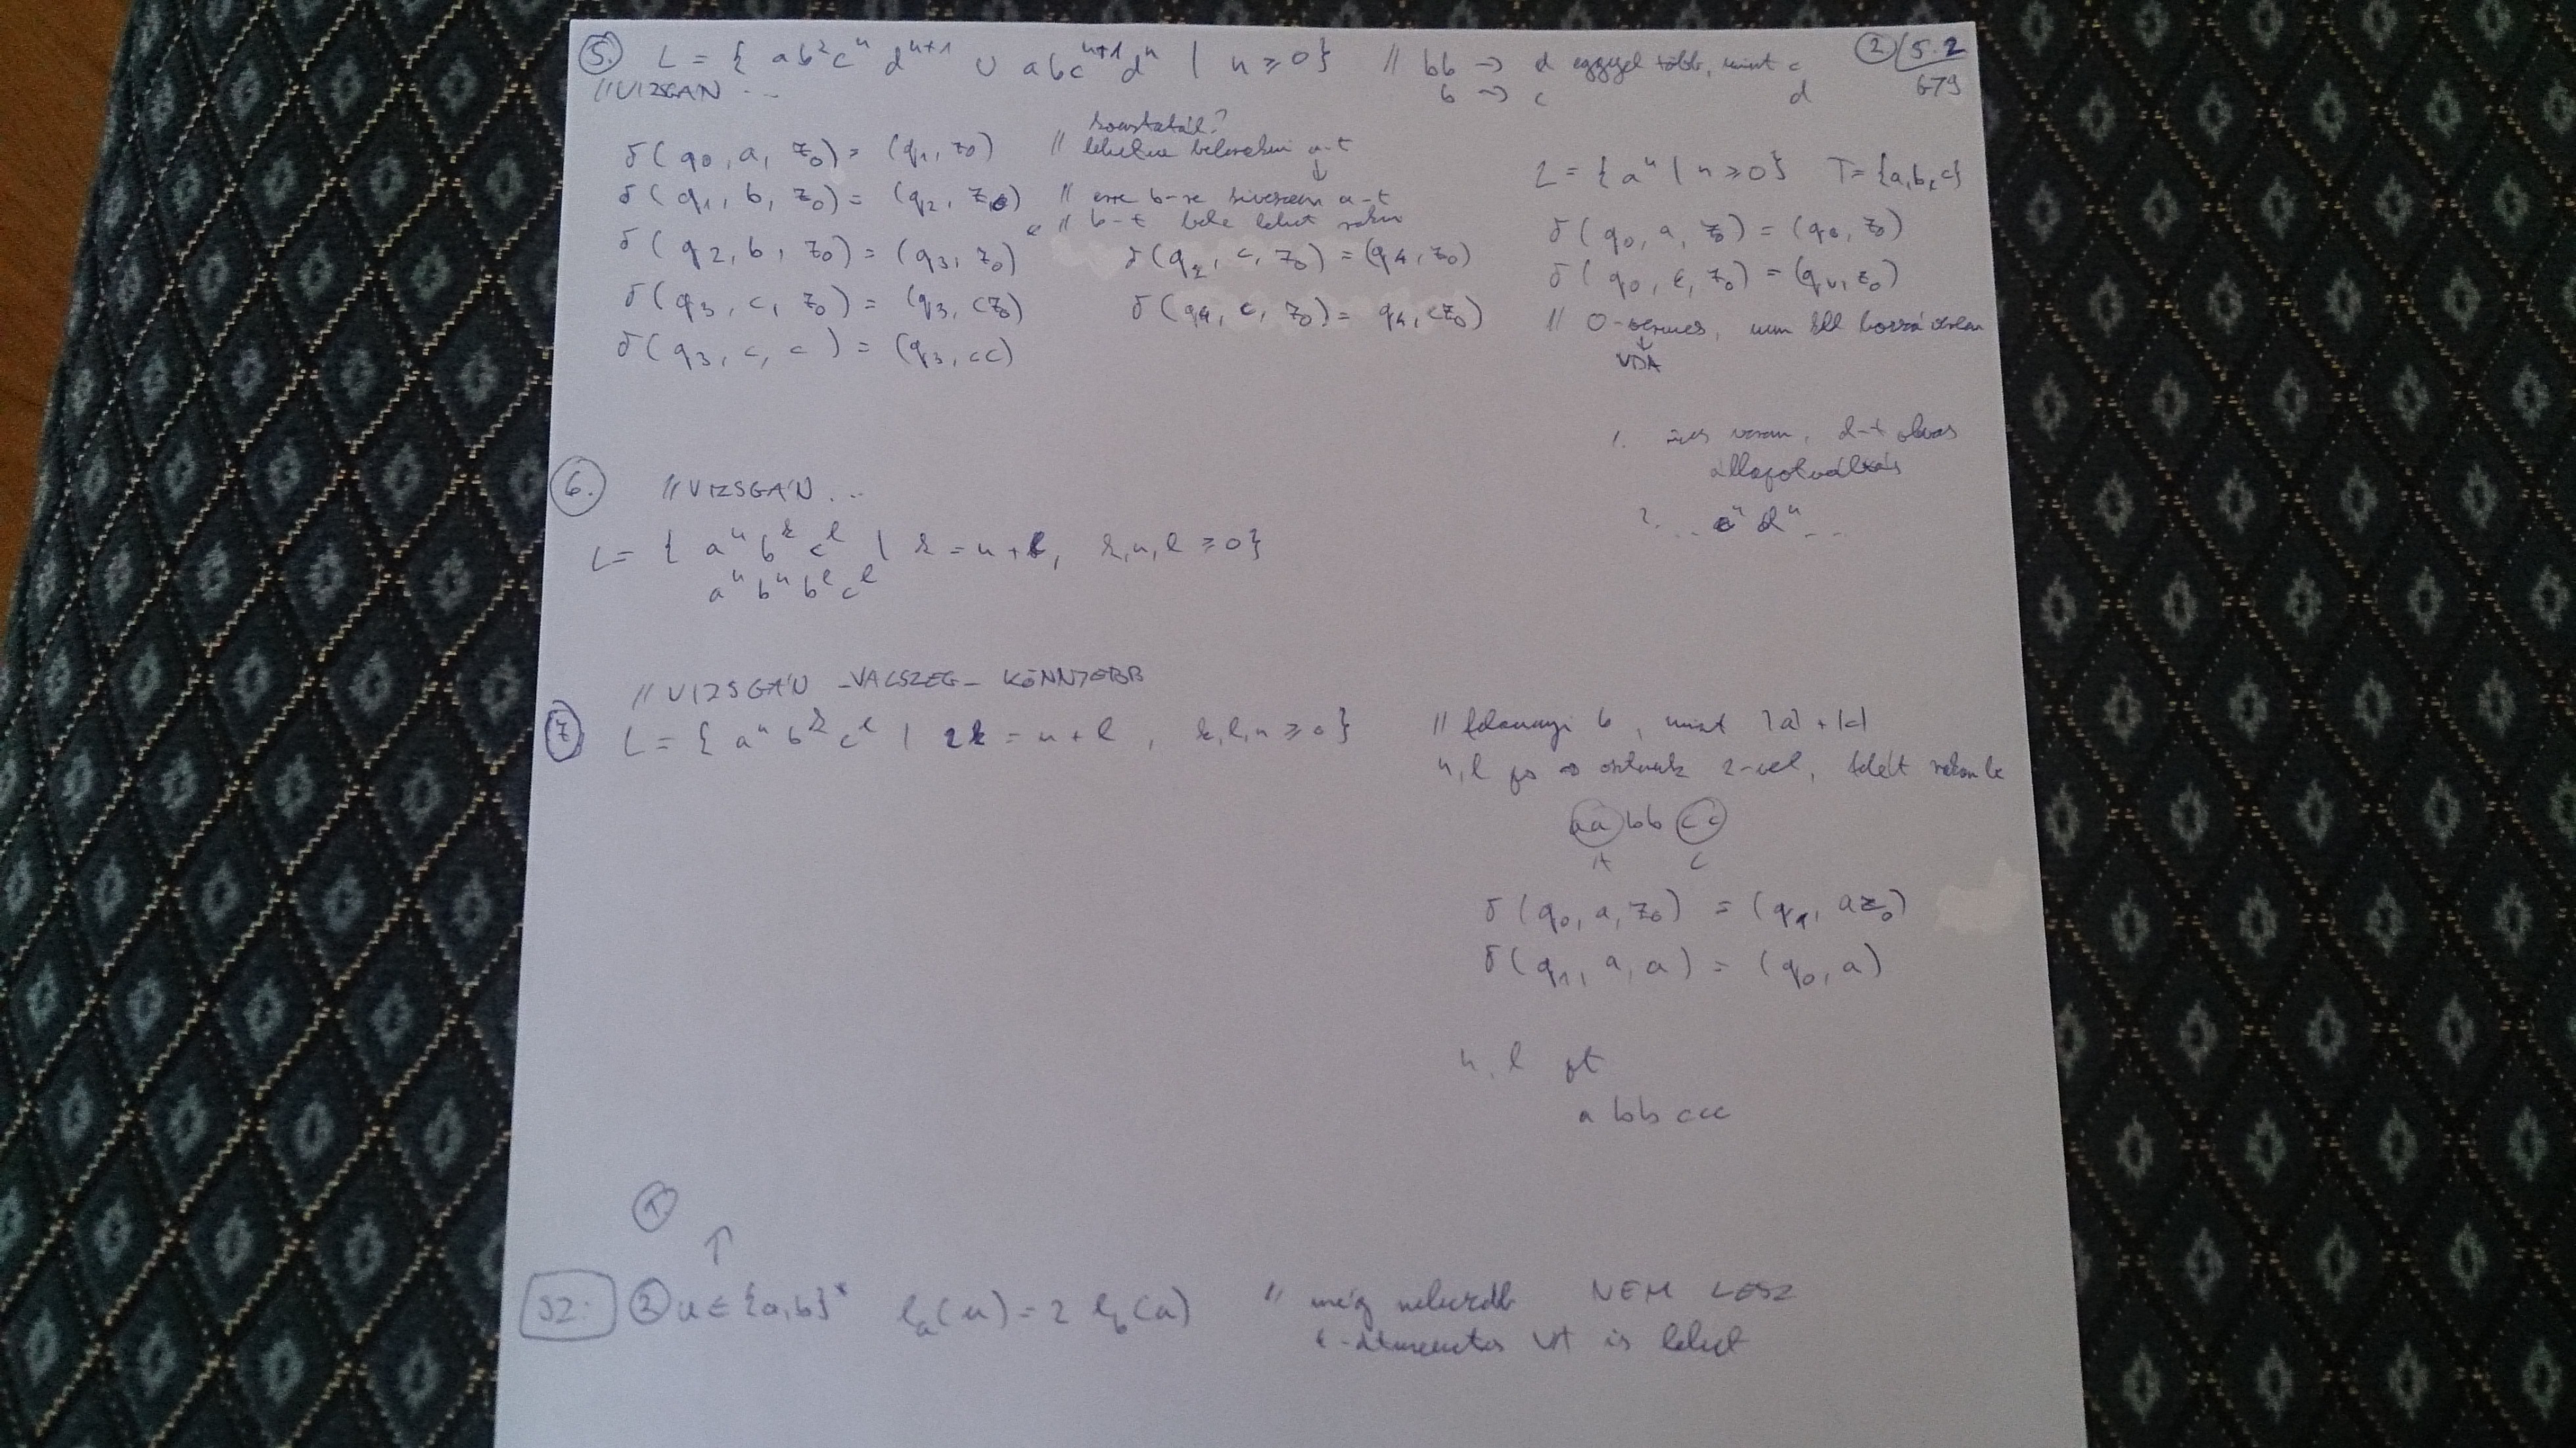 5. L = { ab²cⁿ dⁿ⁺¹ ∪ abcⁿ⁺¹dⁿ | n ≥ 0 } // bb → d eggyel több, mint c
b → c d
2/5.2
679
//VIZSGÁN ...
δ(q0, a, z0) = (q1, z0) // lehetne belerakni a-t
δ(q1, b, z0) = (q2, z0) // erre b-re kiveszem a-t
// b-t bele lehet rakni
δ(q2, b, z0) = (q3, z0) δ(q2, c, z0) = (q4, z0)
δ(q3, c, z0) = (q3, cz0) δ(q4, c, z0) = q4, cz0)
δ(q3, c, c) = (q3, cc)
L = { aⁿ | n ≥ 0 } T = {a, b, c}
δ(q0, a, z0) = (q0, z0)
δ(q0, ε, z0) = (qv, z0)
// 0-vermes, nem kell
VDA
1. üres verem, d-t olvas
állapotváltás
2. ... cⁿ dⁿ ...
6. //VIZSGÁN ...
L = { aⁿ bᵏ cˡ | k = n + l, k, n, l ≥ 0 }
aⁿ bⁿ bˡ cˡ
//VIZSGÁN -VALSZEG- KÖNNYEBB
7 L = { aⁿ bᵏ cˡ | 2k = n + l, k, l, n ≥ 0 } // feleannyi b, mint |a| + |c|
n, l ps → osztunk 2-vel, felét rakom le
aa bb cc
A C
δ(q0, a, z0) = (q1, az0)
δ(q1, a, a) = (q0, a)
n, l pt
a bb ccc
1.
↑
SZ. 2 u ∈ {a, b}* lₐ(u) = 2 l_b(u) // még nehezebb NEM LESZ
ε-átmenetes VA is lehet